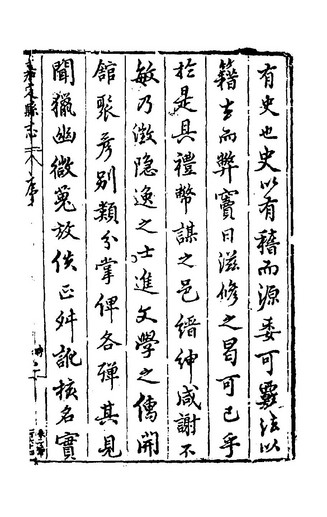 有史也史以有籍而源委可覈法以
籍去而弊竇日滋修之曷可已乎
於是具禮幣謀之邑縉紳咸謝不
敏乃徵隱逸之士進文學之儔開
館聚彥別類分掌俾各殫其見
聞獵幽微蒐放佚正舛訛核名實
嘉定縣志 序